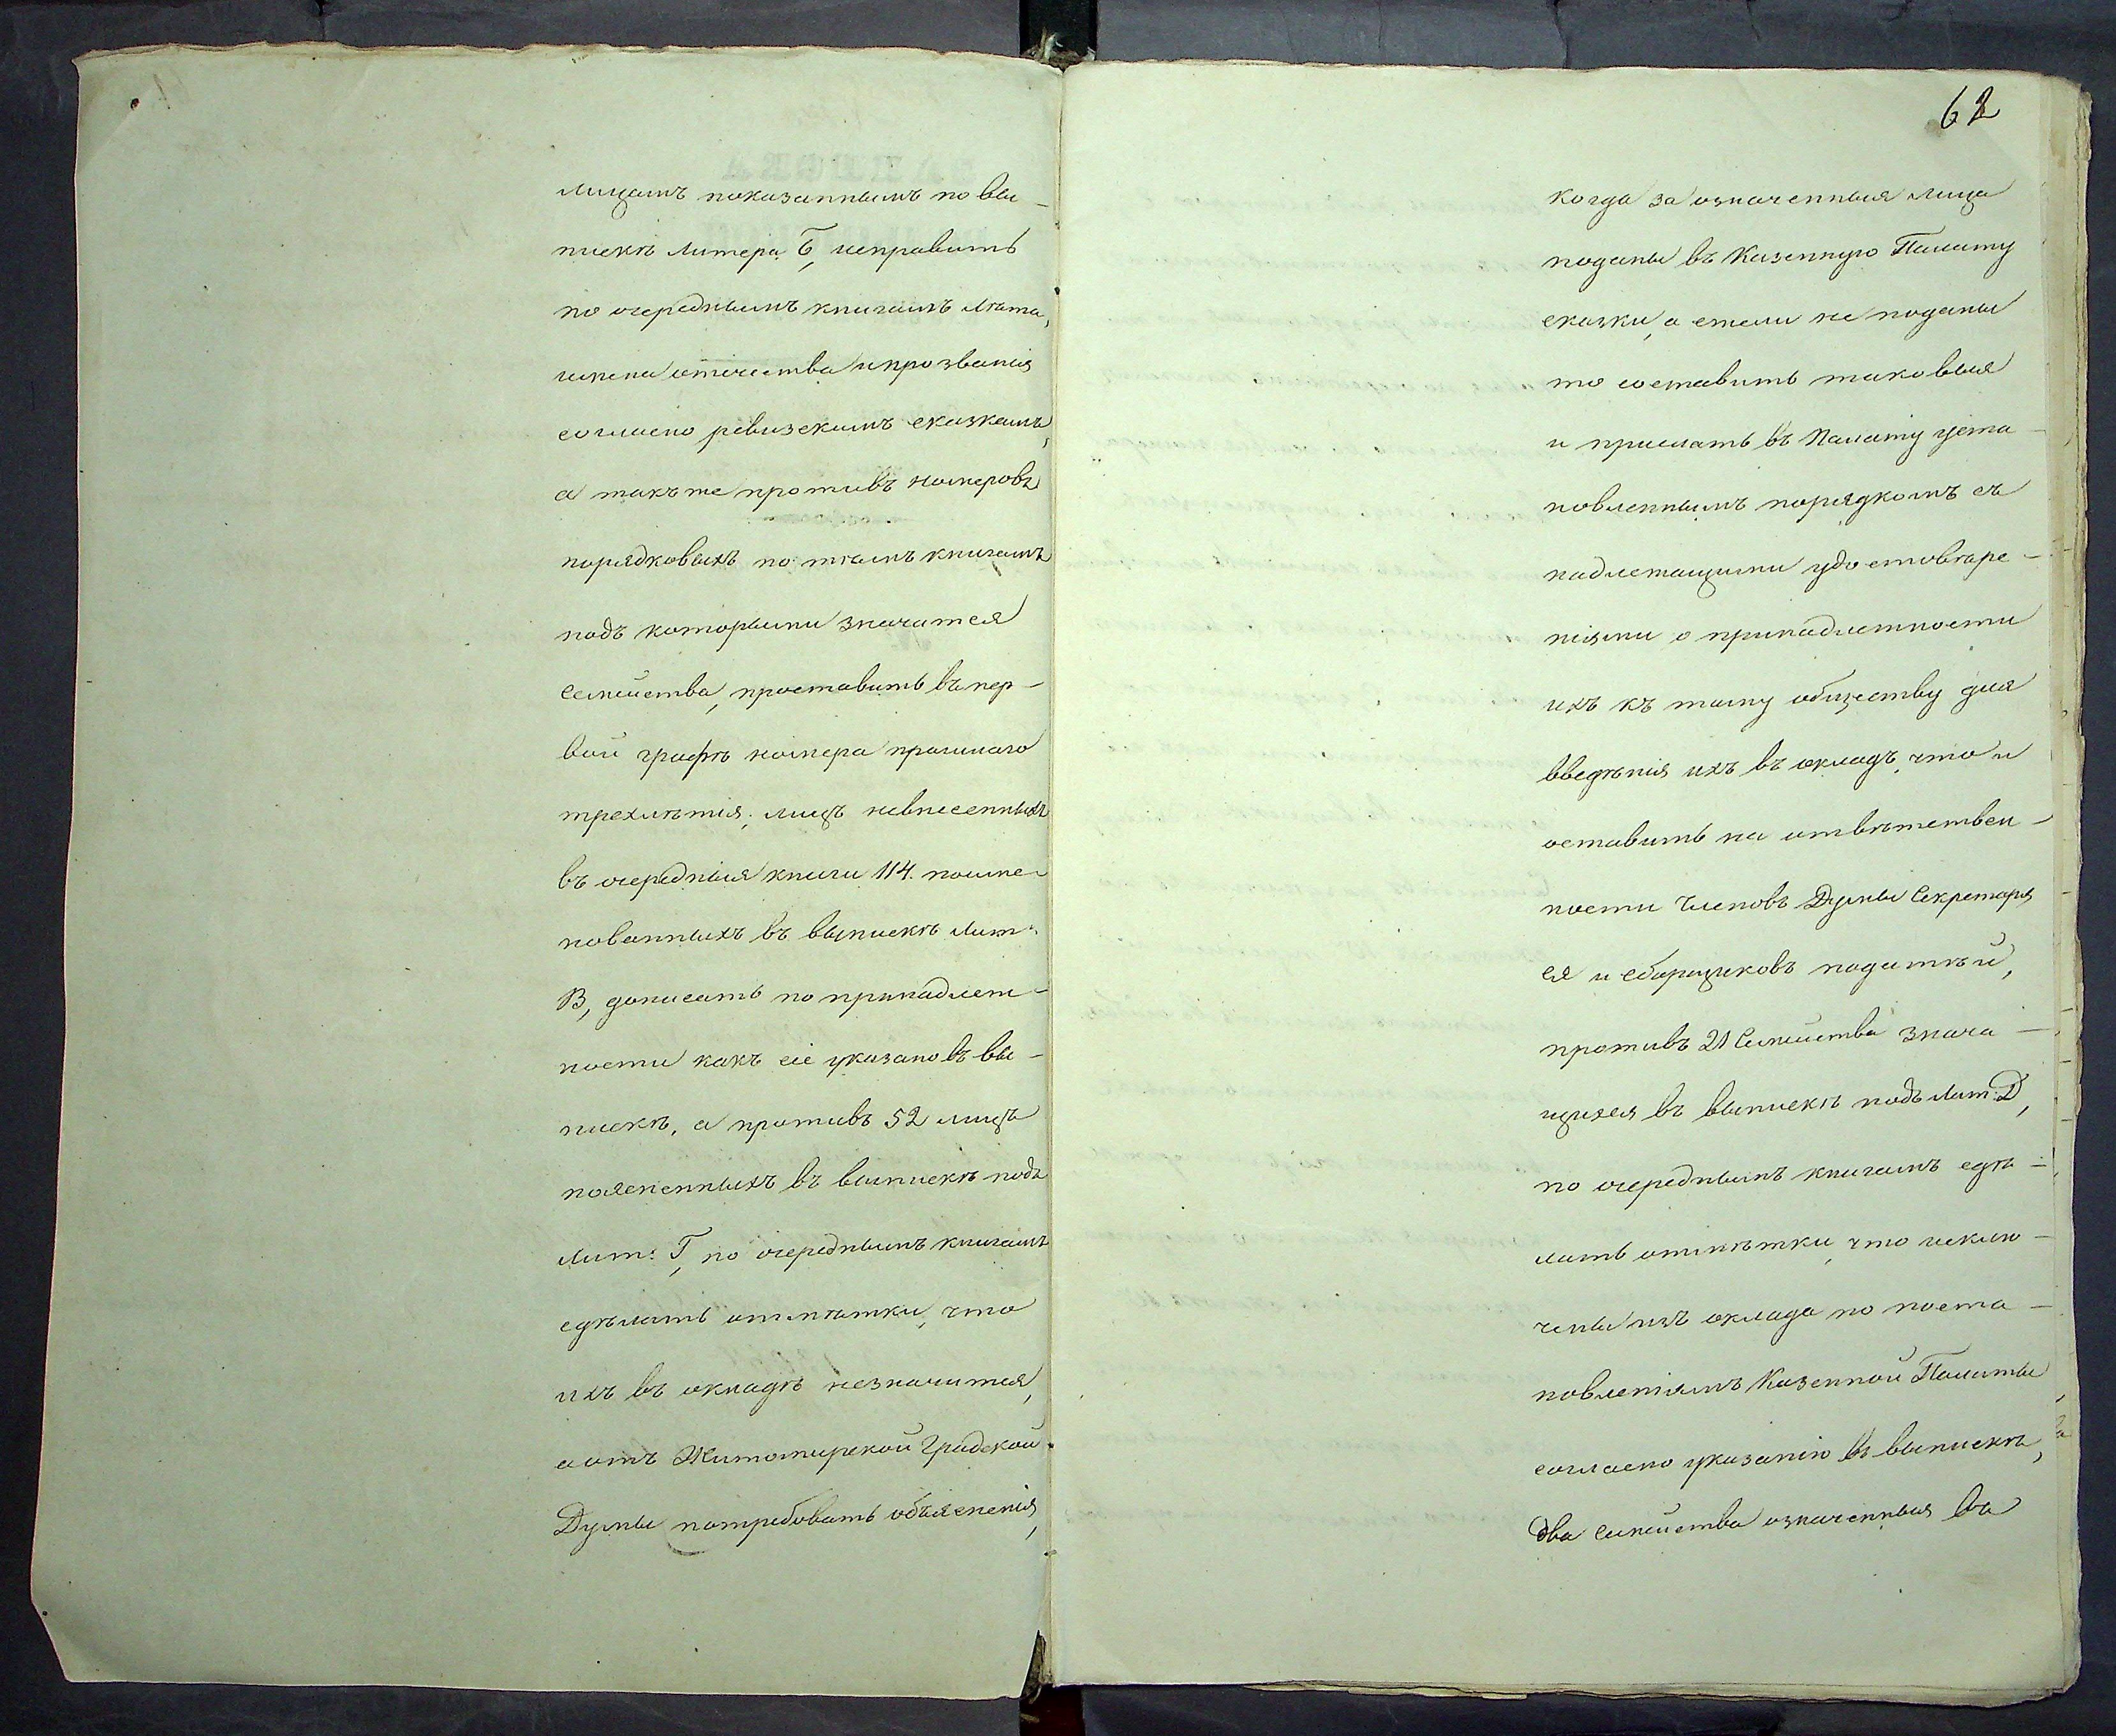 лицамъ показаннымъ по вы-
пискѣ литера Б, исправить
по очереднымъ книгамъ лѣта,
имена отчества и прозванія
согласно ревизскимъ сказкамъ,
а такъ же противъ номеровъ
порядковыхъ по тѣмъ книгамъ
подъ которыми значатся
семейства, проставить въ пер-
вой графѣ номера прошлаго
трехлѣтія; лицъ невнесенныхъ
въ очередныя книги 114. поиме-
нованныхъ въ выпискѣ лит:
В, дописать по принадлеж-
ности какъ сіе указано въ вы-
пискѣ, а противъ 52 лицъ
поясненныхъ въ выпискѣ подъ
лит: Г, по очереднымъ книгамъ
сдѣлать отмѣтки, что
ихъ въ окладѣ незначится,
а отъ Житомирской Градской
Думы потребовать объясненія,
62
когда за означенныя лица
поданы въ Казенную Палату
сказки, а если не поданы
то составить таковыя
и прислать въ Палату уста-
новленнымъ порядкомъ съ
надлежащими удостовѣре-
ніями о принадлежности
ихъ къ тому обществу для
введѣнія ихъ въ окладъ, что и
оставить на отвѣтствен-
ности Членовъ Думы Секретаря
ея и сборщиковъ податѣй,
противъ 21 Семейства знача-
щихся въ выпискѣ подъ лит: Д,
по очереднымъ книгамъ сдѣ-
лать отмѣтки, что исклю-
чены изъ оклада по поста-
новленіямъ Казенной Палаты
согласно указанію въ выпискѣ,
два семейства означенныя въ